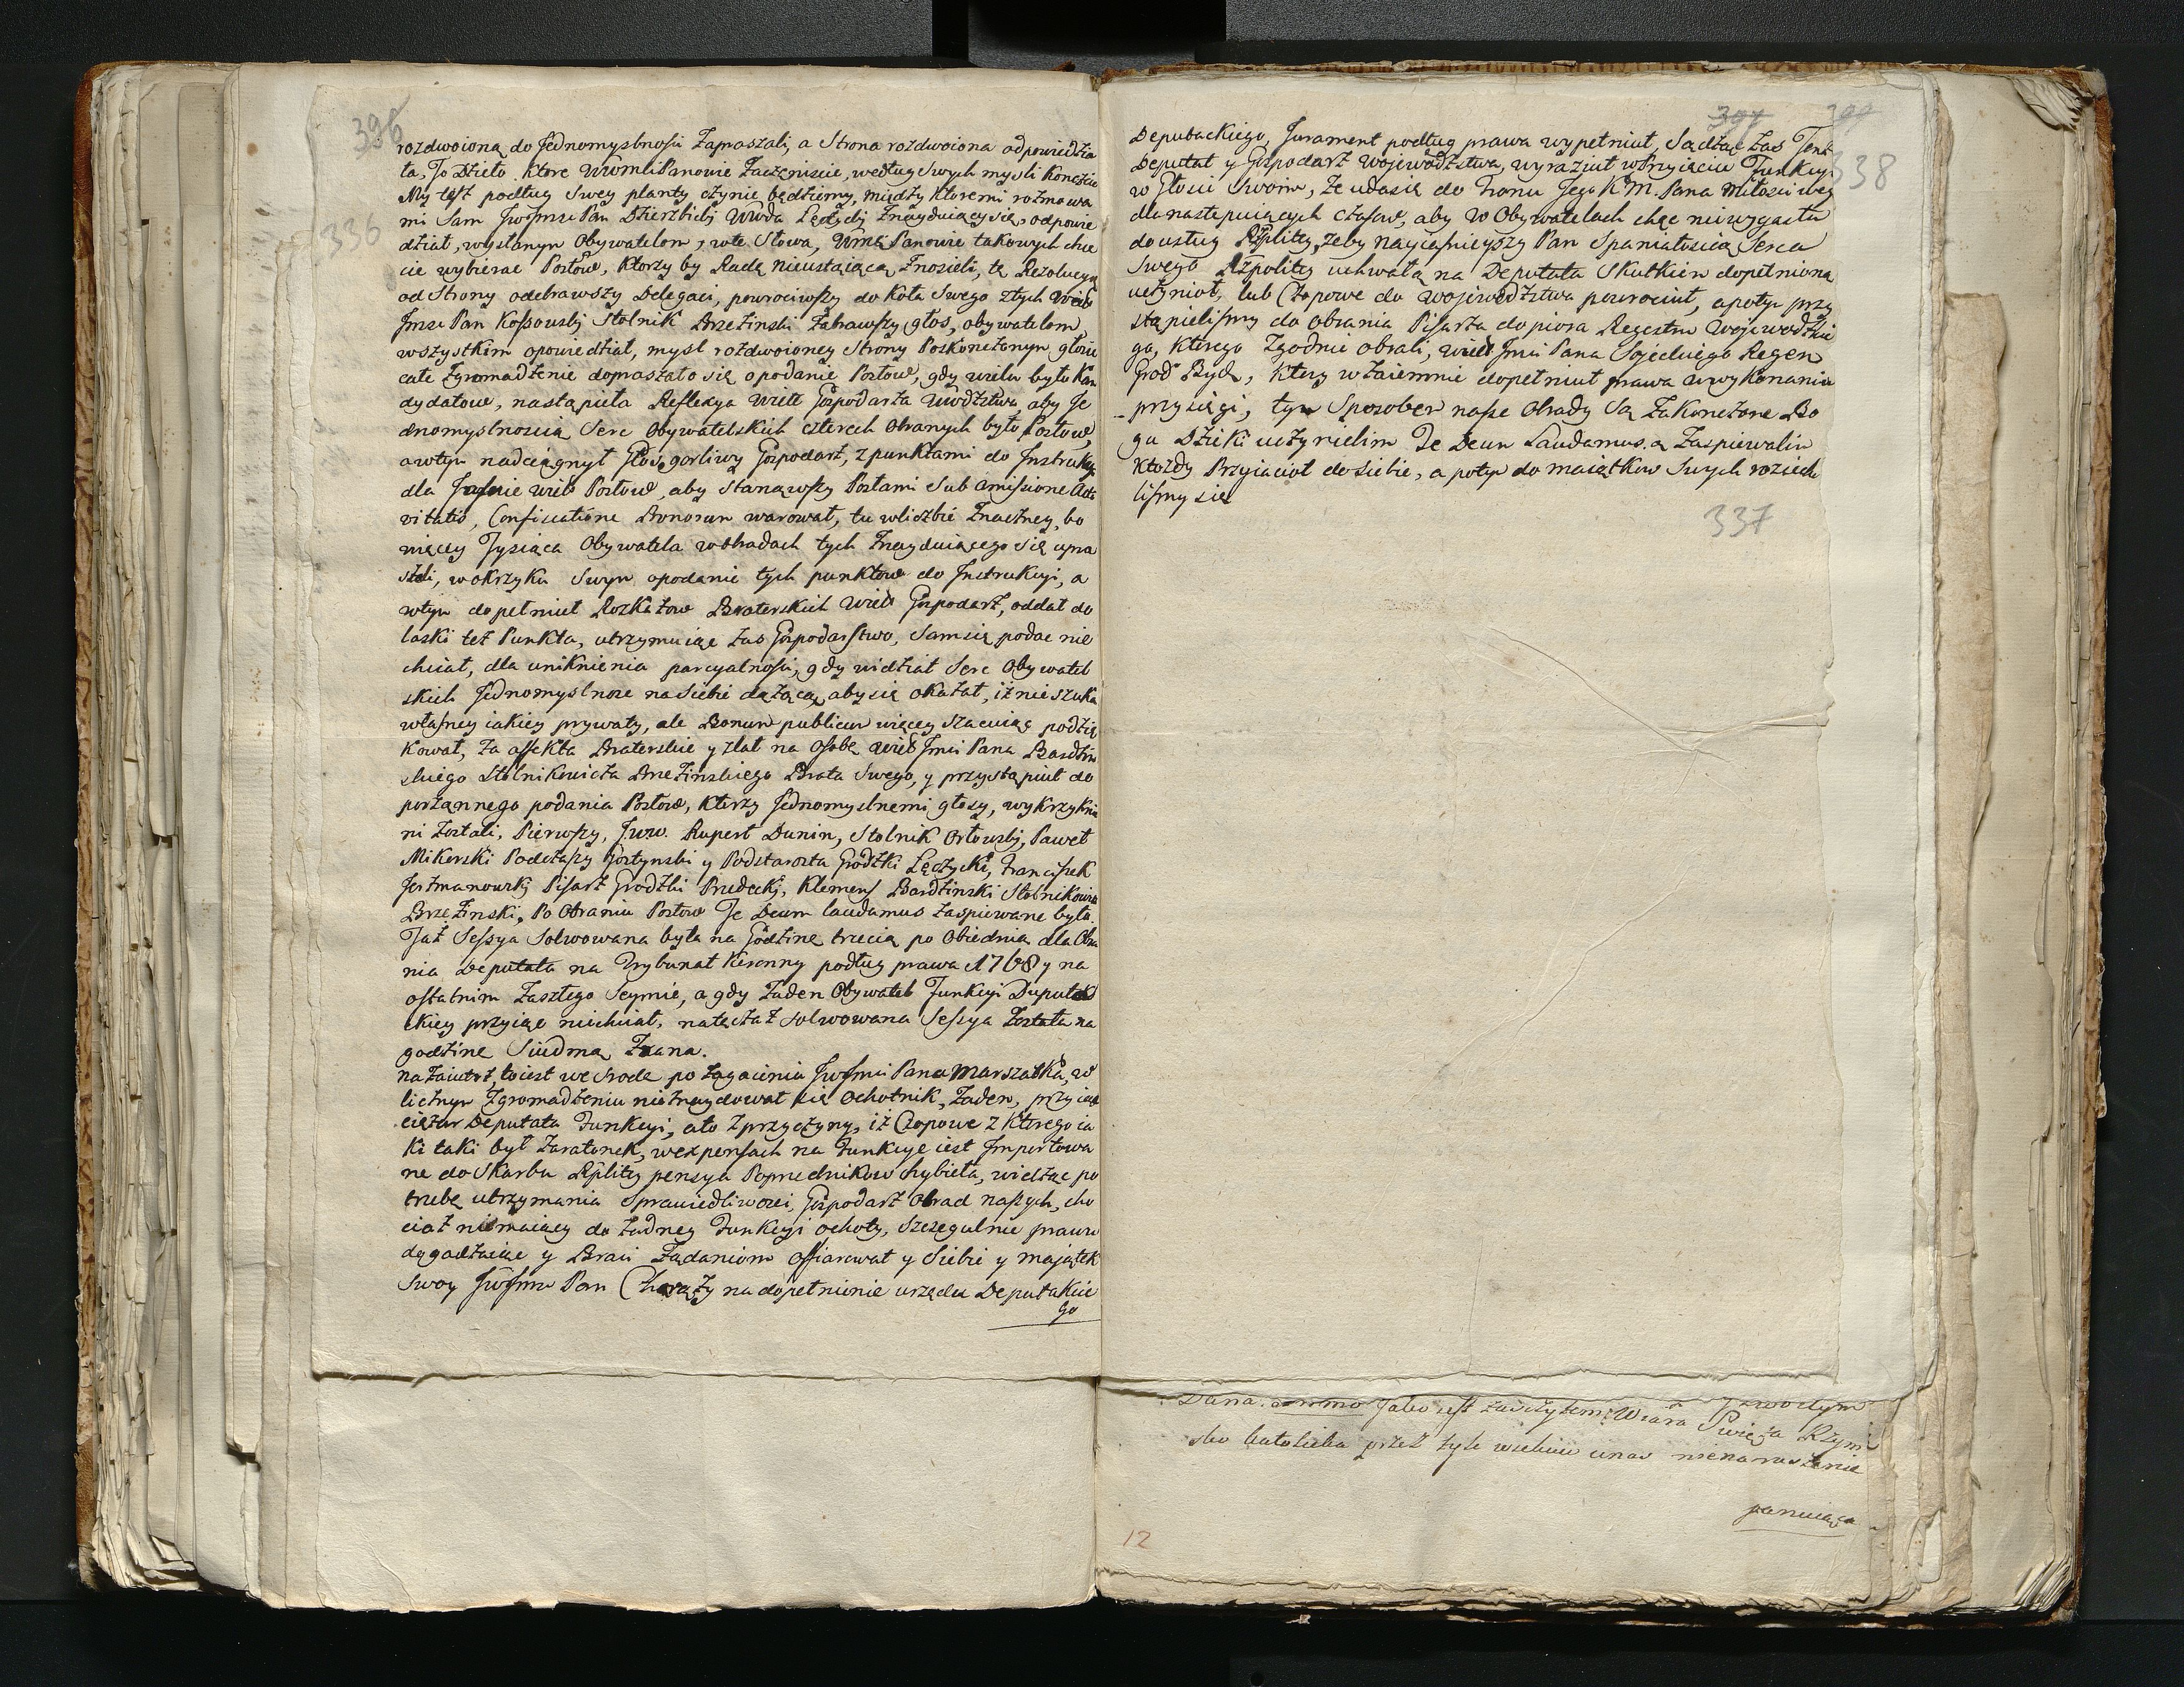 396
rozdwoioną do Jednomyslnosci Zapraszali, a Strona rozdwoiona odpowiedzia
ła, To Dzieło Ktore WWmMPanowie Zaczeniscie, według Swych mysli Konczcie
My też podług Swey planty czynic będziemy, między Ktoremi rozmowa
336
mi Sam JWJmsc Pan Dzierzbicki Wwoda Łęczycki Znayduiący się, odpowie
dział, wysłanym Obywatelom, wte Słowa, WMć Panowie takowych chce
cie wybierac Posłow, Ktorzy by Radę Nieustaiącą Znosieli, tę Rezolucyą
od Strony odebrawszy Delegaci, powrociwszy do Koła Swego z tych Wielb
Jmsc Pan Kossowski Stolnik Brzezinski Zabrawszy głos, obywatelom
wszystkim opowiedział, mysl rozdwoioney Strony Poskonczonym głosie
całe Zgromadzenie dopraszało się o podanie Posłow, gdy wielu było Kan
dydatow, nastąpiła Reflexya Wielb Gospodarza Wwodztwa aby Je
dnomyslnoscią Serc Obywatelskich czterech Obranych było Posłow,
a wtym nadciągnył Głos gorliwy Gospodarz, z punktami do Instrukcyi
dla Jasnie Wielb Posłow, aby Stanąwszy Posłami Sub amissione Acti
vitatis, Confiscatione Bonorum warował, tu wliczbie Znaczney, bo
więcey Tysiąca Obywatela w obradach tych Znayduiącego się upra
szali, w okrzyku Swym o podanie tych punktow do Instrukcyi, a
wtym dopełniuł Rozkazow Braterskich Wielb Gospodarz, oddał do
laski też Punkta, utrzymuiąc zas Gospodarstwo, Sam się podac nie
chciał, dla uniknienia parcyalnosci, gdy widział Serc Obywatel
skich Jednomyslnosc na Siebie dążącą, aby się okazał, iż nie szuka
własney iakiey prywaty, ale Bonum publicum więcey szacuiąc podzię
Kował, za affekta Braterskie y zlał na Osobę Wielb Jmci Pana Bardzin
skiego Stolnikowicza Brzezinskiego Brata Swego, y przystąpiuł do
porząnnego podania Posłow, Ktorzy Jednomyslnemi głosy, wykrzyknie
ni zostali, Pierwszy, Jww. Rupert Dunin, Stolnik Orłowski, Paweł
Mikorski Podczaszy Gostynski y Podstarosta Grodzki Łęczycki, Franciszek
Jerzmanowski Pisarz Grodzki Przedecki, Klemens Bardzinski Stolnikowicz
Brzezinski, Po Obraniu Posłow Te Deum laudamus zaspiewane było.
Taż Sessya Solwowana była na Godzine trzecią po Obiednią dla Obra
nia Deputata na Trybunał Koronny podług prawa 1768 y na
ostatnim Zaszłego Seymie, a gdy żaden Obywatel Funkcyi Deputac
kiey przyiąc niechciał, natęczaz solwowana Sessya Została na
godzine Siudmą Zrana.
na zaiutrz, toiest we Srode po zagaieniu JwJmci Pana Marszałka, w
licznym Zgromadzeniu nieznaydował się Ochotnik, Zaden, przyiąc
ciężar Deputata Funkcyi, ato z przyczyny, iż Czopowe z Ktorego ia
Ki taki był Zaratonek, wexpensach na Funkcye iest Importowa
ne do Skarbu Rplitey pensya Poprzednikow chybieła, widząc po
trzebę utrzymania Sprawiedliwosci, Gospodarz Obrad naszych, cho
ciaż niemaiący do żadney Funkcyi ochoty, szczegulnie prawu
dogadzaiąc y Braci Ządaniom offiarował y Siebie y majątek
Swoy JwJmć Pan Chorąży na dopełnienie urzędu Deputackie
go
397
338
Deputackiego, Jurament podług prawa wypełniuł, Sądząc zas Tenz
Deputat y Gospodarz Wojewodztwa, wyraziuł wPrzyięciu Funkcyi
w Głosie Swoim, że uda się do Tronu Jego K M. Pana Miłosciweg
dla następuiących czasow, aby w Obywatelach chęc nie wygasła
do usług Rzplitey, żeby nayiasnieyszy Pan Spaniałoscią Serca
Swego Rzpolitey uchwałą na Deputata Skutkiem dopełnioną
uczynioł, lub Czopowe do wojewodztwa powrociuł, a potym przy
stąpielismy do obrania Pisarza do piora Regestru Wojewodzkie
go, Ktorego Zgodnie obrali, Wielb Jmci Pana Sojeckiego Regen
Grod Byd, Ktory wzaiemnie dopełniuł prawa w wykonaniu
przysięgi, tym Sposobem nasze Obrady Są Zakonczone Bo
gu Dzieki uczynielim Te Deum Laudamus. a Zaspiewalim
Każdy Przyiacioł do Siebie, a potym do maiątkow Swych roziech
lismy się
337
Dana. ammo Jako iest zaszczytem Wiara Swięta Rzym
sko katolicka przez tyle wiekow unas nienaruszenie
panuiąca
12